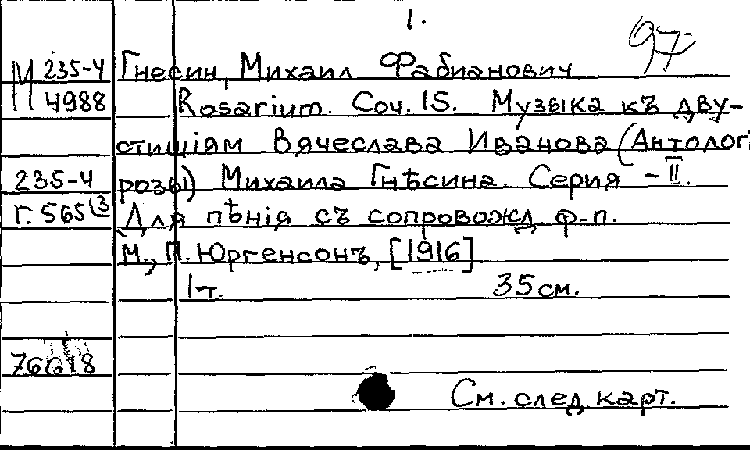 1.
97
М 235-4 Гнесин, Михаил Фабианович
4988 Rosarium. Соч. 15. Музыка къ дву-
стишіям Вячеслава Иванова (Антологі
235-4 розы) Михаила Гнѣсина. Серия - II.
Г. 565(3 Для пѣнія съ сопровожд. ф-п.
М., П. Юргенсонъ, [1916]
1 т. 35 см.
См. след. карт.